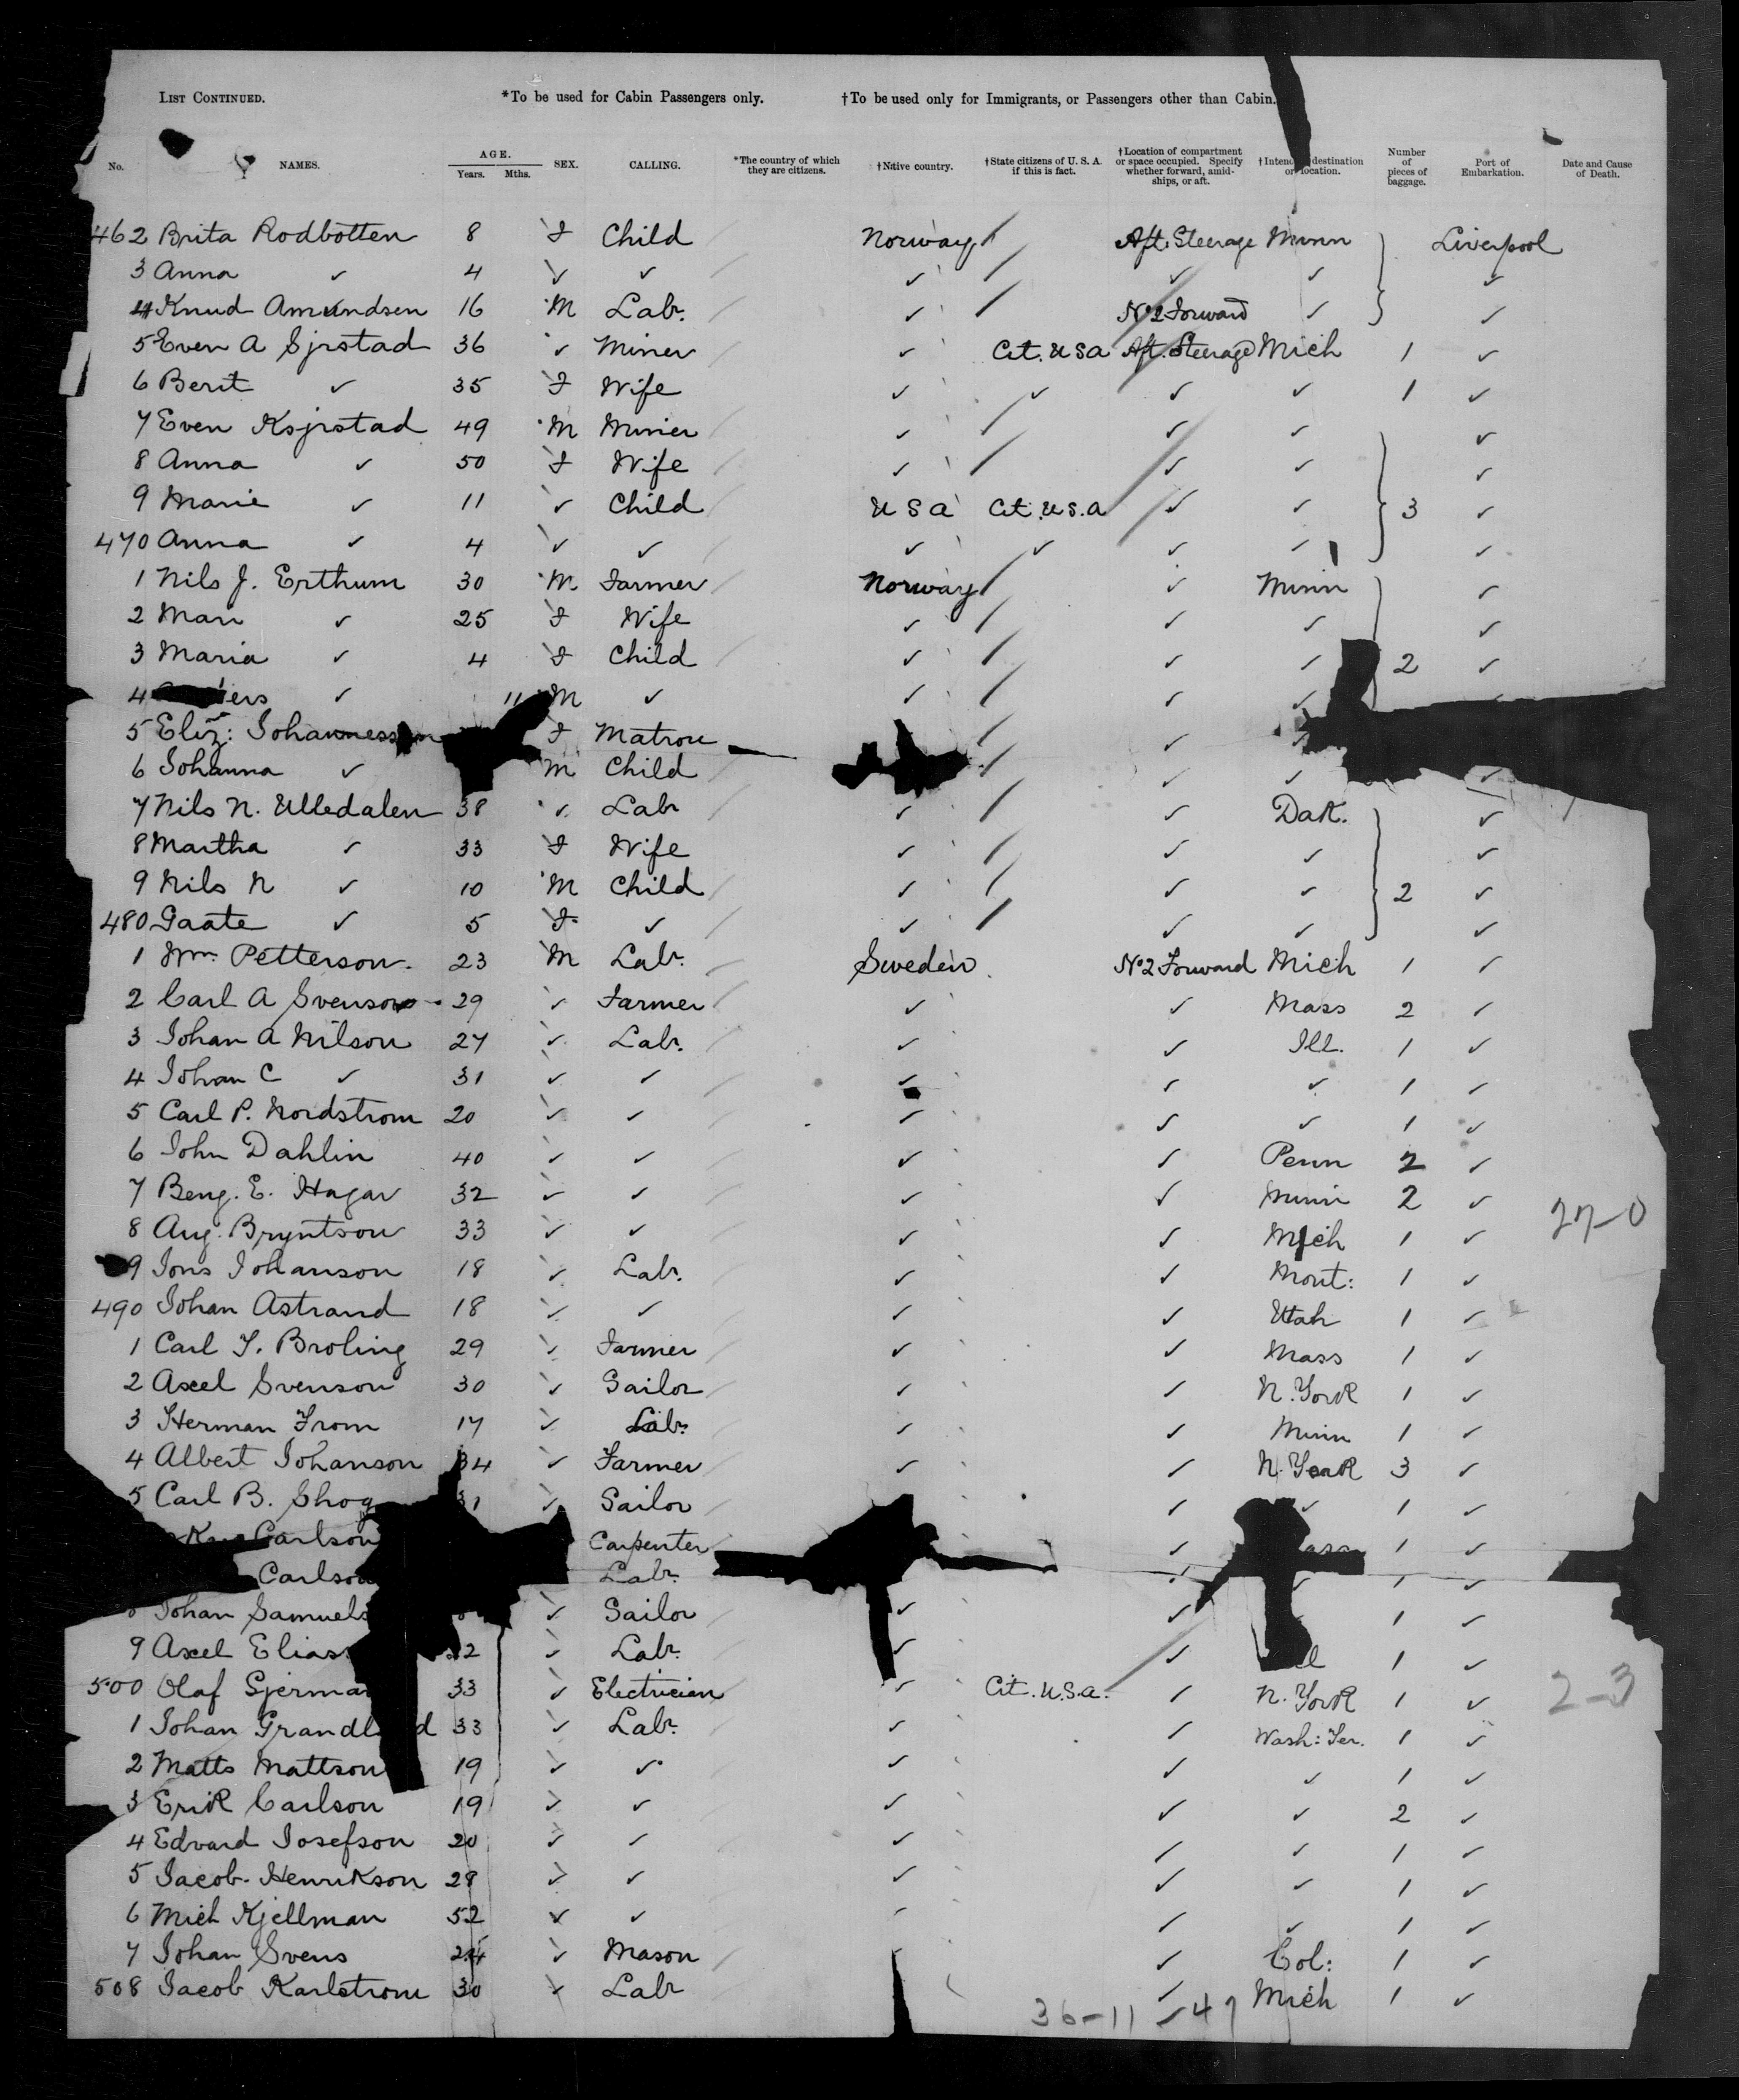 LIST CONTINUED. *To be used for Cabin Passengers only. †To be used only for Immigrants, or Passengers other than Cabin.
No. NAMES. AGE. Years. Mths. SEX. CALLING. *The country of which they are citizens. †Native country. †State citizens of U. S. A. if this is fact. †Location of compartment or space occupied. Specify whether forward, amidships, or aft. destination location. Number of pieces of baggage. Port of Embarkation. Date and Cause of Death.
462 Brita Rodbotten 8 F Child Norway Aft. Steerage Minn Liverpool
3 Anna ✓ 4 ✓ ✓ ✓ ✓ ✓ ✓
4 Knud Amundsen 16 M Labr. ✓ No 2 Forward ✓ ✓
5 Even A Sjrstad 36 ✓ Miner ✓ Cit. USA Aft. Steerage Mich 1 ✓
6 Berit ✓ 35 F Wife ✓ ✓ ✓ ✓ 1 ✓
7 Even Ksjrstad 49 M Miner ✓ ✓ ✓ ✓
8 Anna ✓ 50 F Wife ✓ ✓ ✓ ✓
9 Marie ✓ 11 ✓ Child U S a Cit. U.S.a ✓ ✓ 3 ✓
470 Anna ✓ 4 ✓ ✓ ✓ ✓ ✓ ✓ ✓
1 Nils J. Erthum 30 M Farmer Norway ✓ Minn ✓
2 Mari ✓ 25 F Wife ✓ ✓ ✓ ✓
3 Maria ✓ 4 F Child ✓ ✓ ✓ 2 ✓
4 ers ✓ 11 M ✓ ✓ ✓ ✓
5 Eliz: Johannessen F Matron ✓
6 Johanna ✓ M Child ✓ ✓ ✓
7 Nils N. Ulledalen 38 ✓ Labr ✓ ✓ Dak. ✓
8 Martha ✓ 33 F Wife ✓ ✓ ✓ ✓
9 Nils N ✓ 10 M Child ✓ ✓ ✓ 2 ✓
480 Gaate ✓ 5 F ✓ ✓ ✓ ✓ ✓
1 Wm. Petterson. 23 M Labr. Sweden No 2 Forward Mich 1 ✓
2 Carl A Svenson 29 ✓ Farmer ✓ ✓ Mass 2 ✓
3 Johan A Nilson 27 ✓ Labr. ✓ ✓ Ill. 1 ✓
4 Johan C ✓ 31 ✓ ✓ ✓ ✓ ✓ 1 ✓
5 Carl P. Nordstrom 20 ✓ ✓ ✓ ✓ ✓ 1 ✓
6 John Dahlin 40 ✓ ✓ ✓ ✓ Penn 2 ✓
7 Beng. E. Hagar 32 ✓ ✓ ✓ ✓ Minn 2 ✓
8 Aug. Bryntson 33 ✓ ✓ ✓ ✓ Mich 1 ✓ 27-0
9 Jons Johanson 18 ✓ Labr. ✓ ✓ Mont: 1 ✓
490 Johan Astrand 18 ✓ ✓ ✓ ✓ Utah 1 ✓
1 Carl F. Broling 29 ✓ Farmer ✓ ✓ Mass 1 ✓
2 Axel Svenson 30 ✓ Sailor ✓ ✓ N. York 1 ✓
3 Herman From 17 ✓ Labr. ✓ ✓ Minn 1 ✓
4 Albert Johanson 34 ✓ Farmer ✓ ✓ N. York 3 ✓
5 Carl B. Shog 31 ✓ Sailor ✓ ✓ 1 ✓
Carlson Carpenter ✓ 1 ✓
Carlson Labr. ✓ ✓ 1 ✓
8 Johan Samuels ✓ Sailor ✓ ✓ 1 ✓
9 Axel Elias ✓ Labr. ✓ ✓ 1 ✓
500 Olaf Gjerma 33 ✓ Electrician ✓ Cit. U.S.a. ✓ N. York 1 ✓ 2-3
1 Johan Grandl d 33 ✓ Labr. ✓ ✓ Wash: Ter. 1 ✓
2 Matts Mattson 19 ✓ ✓ ✓ ✓ ✓ 1 ✓
3 Erik Carlson 19 ✓ ✓ ✓ ✓ ✓ 2 ✓
4 Edvard Josefson 20 ✓ ✓ ✓ ✓ ✓ 1 ✓
5 Jacob Henrikson 28 ✓ ✓ ✓ ✓ ✓ 1 ✓
6 Mich Kjellman 52 ✓ ✓ ✓ ✓ ✓ 1 ✓
7 Johan Svens 24 ✓ Mason ✓ Col: 1 ✓
508 Jacob Karlstrom 30 ✓ Labr ✓ Mich 1 ✓
36-11 47